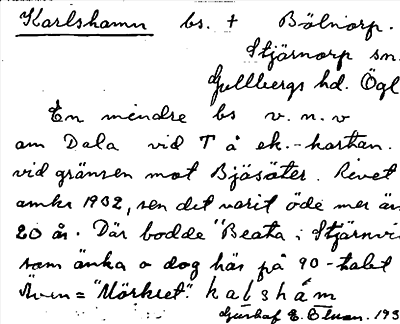 Karlshamn bs. † Bölnorp.
Stjärnorp sn.
Gullbergs hd. Ögl
En mindre bs v.n.v
om Dala vid T å ek.-kartan.
vid gränsen mot Bjäsäter. Rivet
omkr 1932, sen det varit öde mer än
20 år. Där bodde "Beata i Stjärnvi
som änka o dog här på 90-talet
Även = "Mörkret". kalshåm
Gustaf E. 193